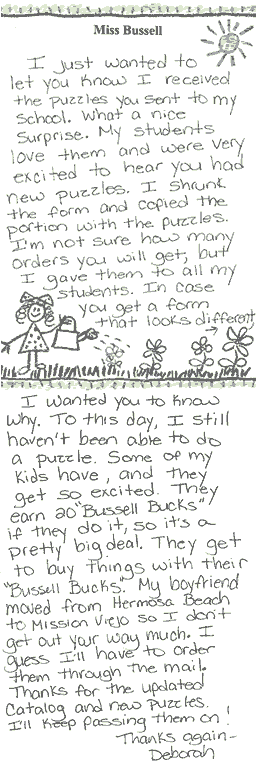 Miss Bussell
I just wanted to
let you know I received
the puzzles you sent to my
school. What a nice
surprise. My students
love them and were very
excited to hear you had
new puzzles. I shrunk
the form and copied the
portion with the puzzles.
I'm not sure how many
orders you will get, but
I gave them to all my
students. In case
you get a form
that looks different
I wanted you to know
why. To this day, I still
haven't been able to do
a puzzle. Some of my
kids have, and they
get so excited. They
earn 20 "Bussell Bucks"
if they do it, so it's a
pretty big deal. They get
to buy things with their
"Bussell Bucks." My boyfriend
moved from Hermosa Beach
to Mission Viejo so I don't
get out your way much. I
guess I'll have to order
them through the mail.
Thanks for the updated
catalog and new puzzles.
I'll keep passing them on!
Thanks again-
Deborah